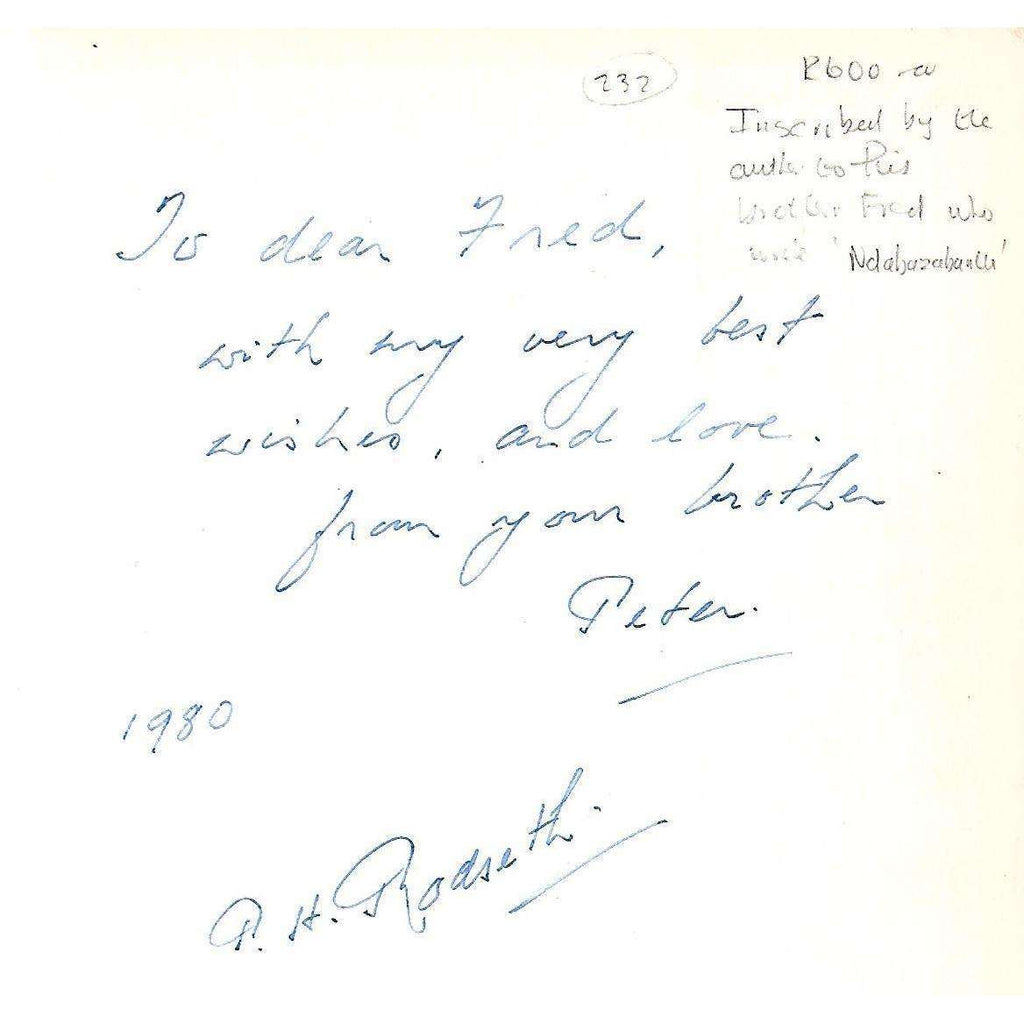 232
R600-00
Inscribed by the
author to his
brother Fred who
wrote 'Ndabazabantu'
To dear Fred,
with my very best
wishes, and love.
from your brother
Peter.
1980
P. H. Rodseth.